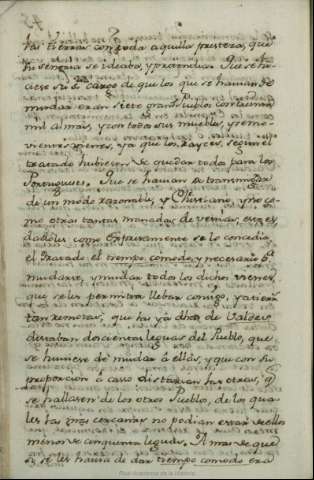 las tierras con toda aquella presteza, que
su Señoria se ideaba, y pretendia. Que se hi-
ciese su S.ª cargo de que los que se havian de
mudar eran siete grandes Pueblos con
mil almas, y con todos sus muebles, y semo-
vientes vienes, ya que los rayces, segun el
tratado huviesen de quedar todos para los
Portugueses. Que se havian de transmigrar
de un modo razonable, y Christiano, y no co-
mo otras tantas manadas de vestias,
dandoles como expresamente se lo concedia
el tratado el tiempo comodo, y necesario p.ª
mudarse, y mudar todos los dichos vienes,
que se les permitia llebar consigo, y a tierras
tan remotas, que las ya dhas de Valdes
distaban doscientas leguas del Pueblo, que
se huviese de mudar à ellas, y que con su
proporcion à caso distarian las otras, q.e
se hallasen de los otros Pueblos, de los qua-
les las mas cercanas no podian estar de ellos
menos de cinquenta leguas. A mas de que
si se les havia de dar tiempo comodo era
Real Academia de la Historia